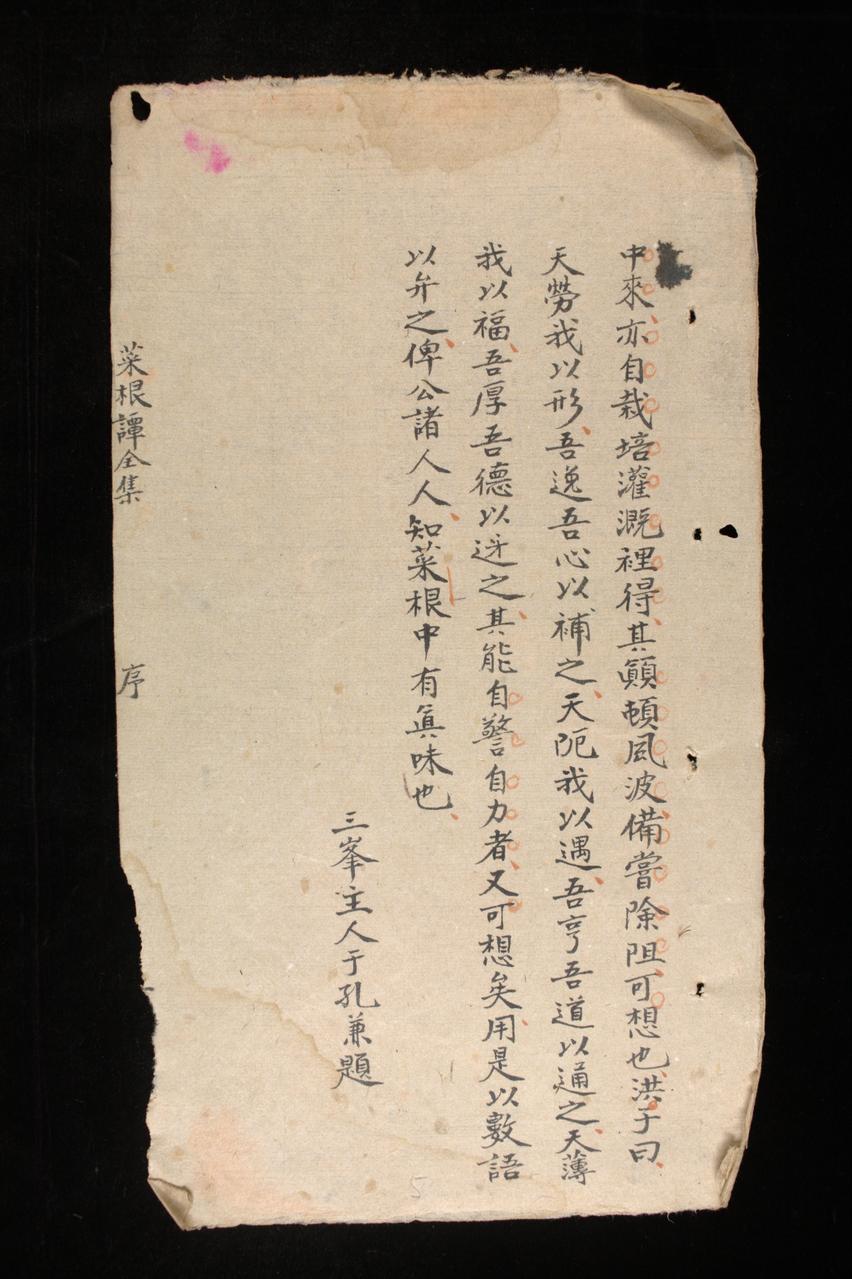 中來亦自栽培灌溉裡得其顛頓風波備嘗除阻可想也洪子曰
天勞我以形吾逸吾心以補之天阨我以遇吾亨吾道以通之天薄
我以福吾厚吾德以迓之其能自警自力者又可想矣用是以數語
以弁之俾公諸人人知菜根中有眞味也
三峯主人于孔兼題
菜根譚全集 序
5